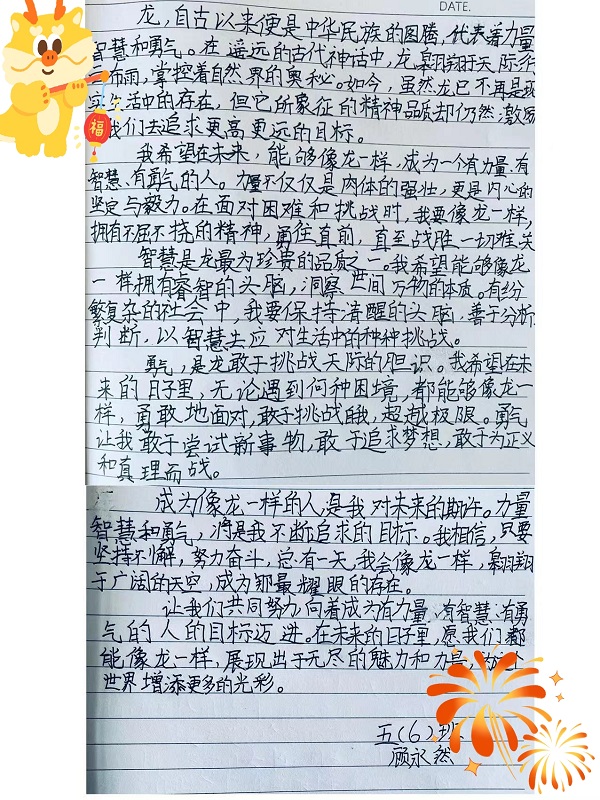 DATE.
龙，自古以来便是中华民族的图腾，代表着力量
智慧和勇气。在遥远的古代神话中，龙翱翔于天际，行
布雨，掌控着自然界的奥秘。如今，虽然龙已不再是现
实生活中的存在，但它所象征的精神品质却仍然激励
我们去追求更高更远的目标。
福
我希望在未来，能够像龙一样，成为一个有力量、有
智慧、有勇气的人。力量不仅仅是肉体的强壮，更是内心的
坚定与毅力。在面对困难和挑战时，我要像龙一样，
拥有不屈不挠的精神，勇往直前，直至战胜一切难关
智慧是龙最为珍贵的品质之一。我希望能够像龙
一样拥有睿智的头脑，洞察世间万物的本质。在纷
繁复杂的社会中，我要保持清醒的头脑，善于分析
判断，以智慧去应对生活中的种种挑战。
勇气，是龙敢于挑战天际的胆识。我希望在未
来的日子里，无论遇到何种困境，都能够像龙一
样，勇敢地面对，敢于挑战自我，超越极限。勇气
让我敢于尝试新事物，敢于追求梦想，敢于为正义
和真理而战。
成为像龙一样的人是我对未来的期许。力量
智慧和勇气，将是我不断追求的目标。我相信，只要
坚持不懈，努力奋斗，总有一天，我会像龙一样，翱翔
于广阔的天空，成为那最耀眼的存在。
让我们共同努力，向着成为有力量、有智慧、有勇
气的人的目标迈进。在未来的日子里，愿我们都
能像龙一样，展现出无尽的魅力和力量，为这个
世界增添更多的光彩。
五(6)班
顾永然